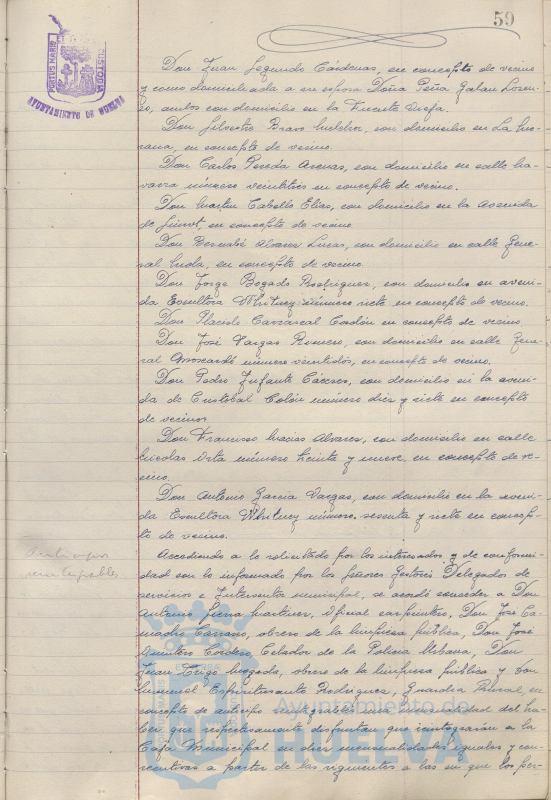 59
PORTUS MARIS ET TERRAE CUSTODIA
AYUNTAMIENTO DE HUELVA
Don Juan Segundo Cárdenas, en concepto de vecino
y como domiciliada a su esposa Doña Peña Galan Loren-
zo, ambos con domicilio en la Fuente Vieja.
Don Silvestre Bravo Melchor, con domicilio en La
en concepto de vecino.
Don Carlos Pereda Arenas, con domicilio en calle Na-
varra número veintitres en concepto de vecino.
Don Martin Cabello Elias, con domicilio en la Avenida
de en concepto de vecino
Don Bernabé Alvarez Lucas, con domicilio en calle Gene-
ral en concepto de vecino.
Don Jorge Bogado Rodriguez, con domicilio en aveni-
da Escultora Whitney número siete en concepto de vecino.
Don Placido Carrascal Cordón en concepto de vecino
Don José Vargas Romero, con domicilio en calle Gene-
ral Moscardó número veintidós, en concepto de vecino.
Don Pedro Infante Cáceres, con domicilio en la aveni-
da de Cristobal Colón número diez y siete en concepto
de vecinos
Don Francisco Macias Alvarez, con domicilio en calle
Nicolas Orta número treinta y nueve en concepto de ve-
cino.
Don Antonio Garcia Vargas, con domicilio en la aveni-
da Escultora Whitney número sesenta y siete en concep-
to de vecino.
Anticipos
reintegrables
Accediendo a lo solicitado por los interesados y de conformi-
dad con lo informado por los Señores Gestores Delegados de
servicios e Interventor municipal, se acordó conceder a Don
Antonio Sierra Martinez, Oficial carpintero, Don José Ca-
macho Carrasco, obrero de la limpieza pública, Don José
Quintero Cordero, Celador de la Policia Urbana, Don
Juan Trigo Mogada, obrero de la limpieza pública y Don
Manuel Espiritusanto Rodriguez, Guardia Rural, en
concepto de anticipo reintegrable una mensualidad del ha-
ber que respectivamente disfrutan que reintegrarán a la
Caja Municipal en diez mensualidades iguales y con-
secutivas a partir de las siguientes a las en que los per-
Ayuntamiento de
HUELVA